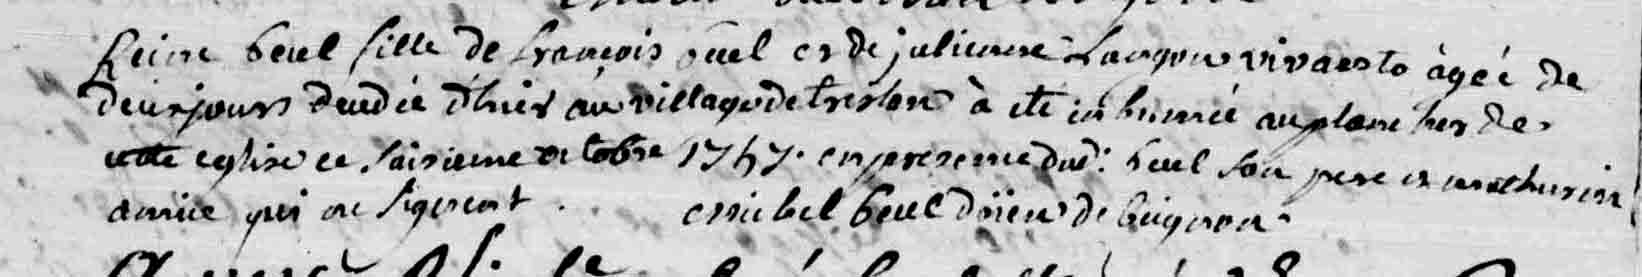 Reine heuel fille de françois heuel et de julienne Langou vivants âgéé de
deux jours decedée d'hier au village de treslan à ete inhumée au plancher de
cette eglise ce saisieme octobre 1747. en presence dud: heuel son pere et mathurin
amice qui ne signent . michel heuel doien de Guignon